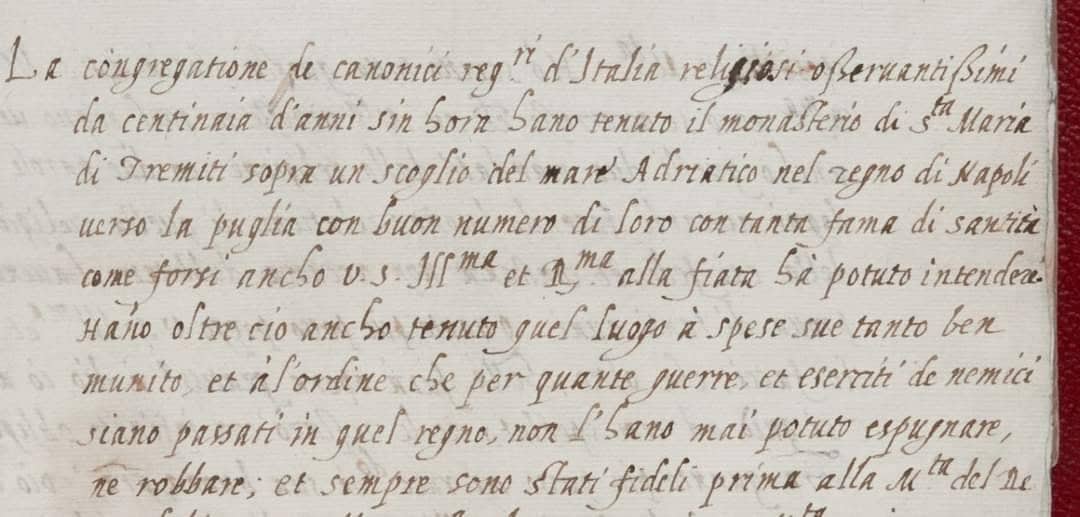 La congregatione de canonici reg.ri d'Italia religiosi osseruantissimi
da centinaia d'anni sin hora hano tenuto il monasterio di S.ta Maria
di Tremiti sopra un scoglio del mare Adriatico nel regno di Napoli
uerso la puglia con buon numero di loro con tanta fama di santità
come forsi ancho V. S. Ill.ma et R.ma alla fiata hà potuto intender.
Hano oltre cio ancho tenuto quel luogo à spese sue tanto ben
munito, et à l'ordine che per quante guerre, et eserciti de nemici
siano passati in quel regno, non l'hano mai potuto espugnare,
ne robbare; et sempre sono stati fideli prima alla M.ta del Re